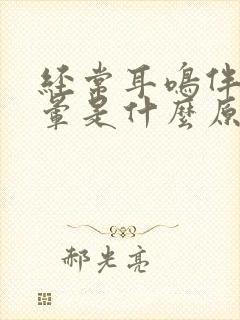 經常耳鳴伴
暈是什麼原
郝光亮